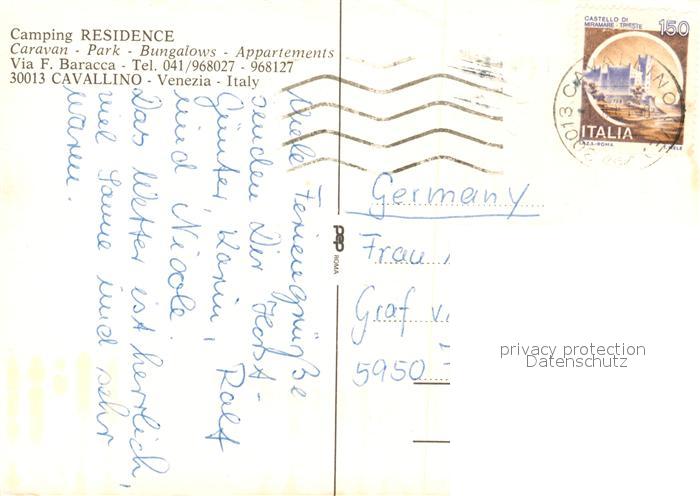 Camping RESIDENCE
Caravan - Park - Bungalows - Appartements
Via F. Baracca - Tel. 041/968027 - 968127
30013 CAVALLINO - Venezia - Italy
Viele Feriengrüße
senden Dir Horst-
Günter, Karin, Ralf
und Nicole.
Das Wetter ist herrlich,
viel Sonne und sehr
warm.
pep
ROMA
CASTELLO DI
MIRAMARE - TRIESTE
150
ITALIA
I.P.Z.S.-ROMA
30013 CAVALLINO
Germany
Frau
Graf v.
5950
privacy protection
Datenschutz